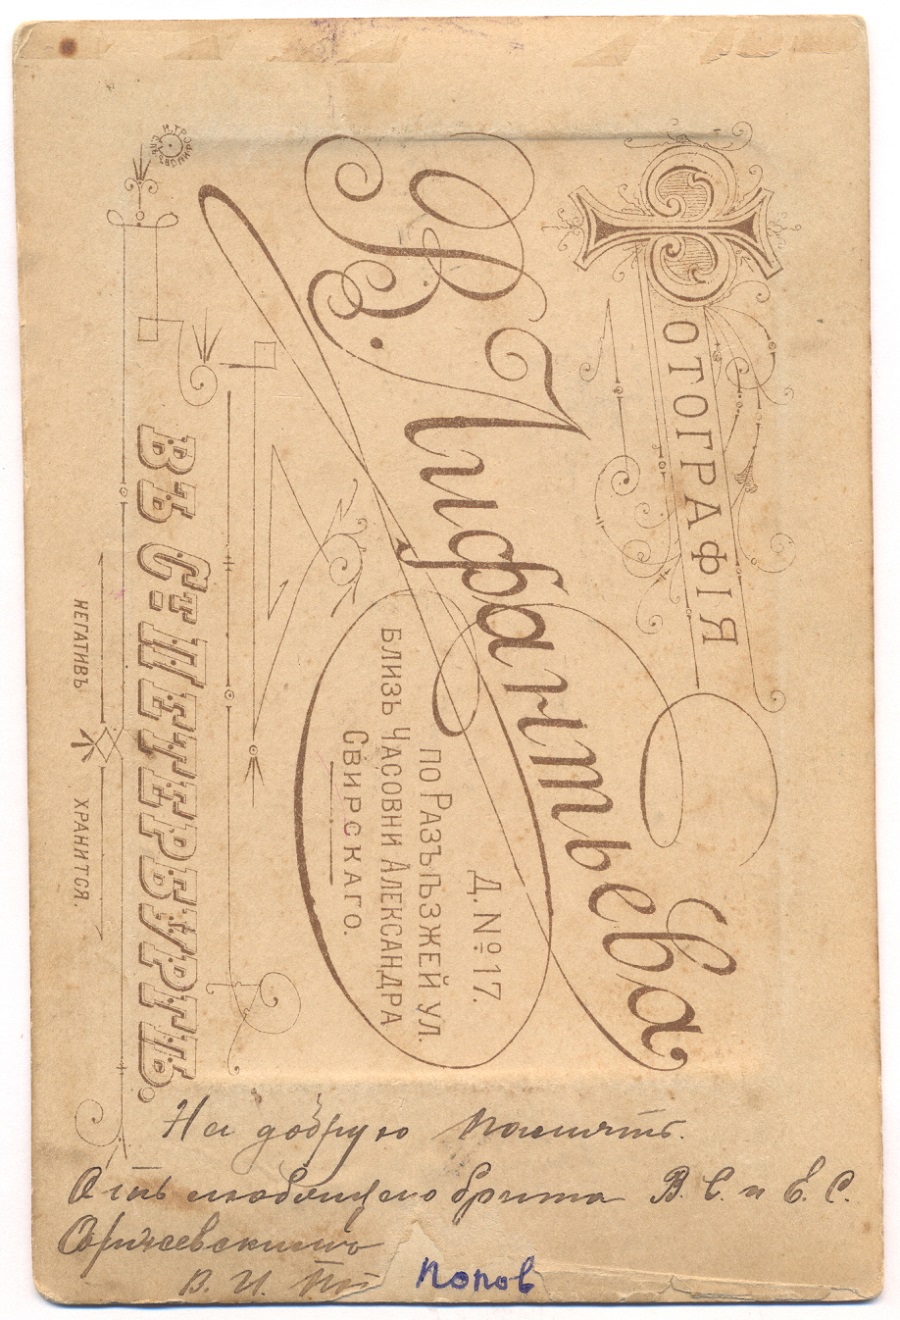 ФОТОГРАФІЯ
В. Лифантьева
Д. № 17.
ПО РАЗЪѢЗЖЕЙ УЛ.
БЛИЗЬ ЧАСОВНИ АЛЕКСАНДРА
СВИРСКАГО.
ВЪ С.ТЪ ПЕТЕРБУРГѢ.
НЕГАТИВЪ ХРАНИТСЯ.
На добрую память.
Отъ любящего брата В. С. и Е. С.
Оржевскимъ
В. И. По
Попов